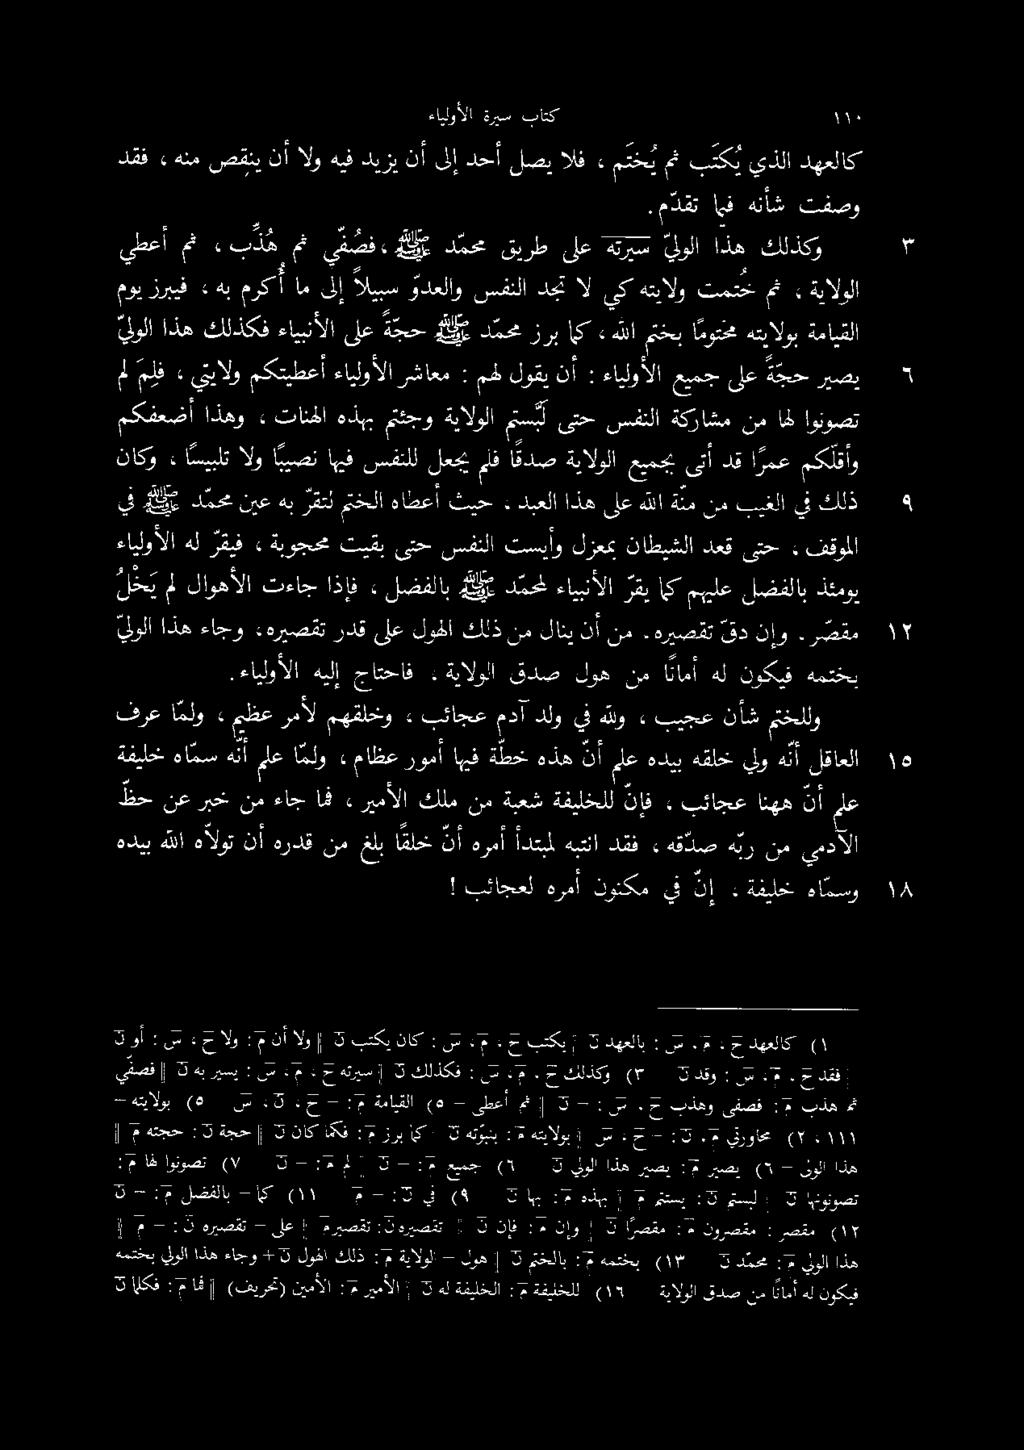 ١١٠ كتاب سيرة الأولياء
كالعهد الذي يُكتَب ثم يُختَم ، فلا يصل أحد إلى أن يزيد فيه ولا أن ينقص منه ، فقد
وصفت شأنه فيما تقدّم.
٣ وكذلك هذا الوليّ سيرته على طريق محمّد ﷺ، فصُفّي ثم هُذِّب ، ثم أعطي
الولاية ، ثم خُتمت ولايته كي لا تجد النفس والعدوّ سبيلاً إلى ما أُكرم به ، فيبرز يوم
القيامة بولايته مختومًا بختم الله ، كما برز محمّد ﷺ حجّةً على الأنبياء فكذلك هذا الوليّ
٦ يصير حجّةً على جميع الأولياء : أن يقول لهم : معاشر الأولياء أعطيتكم ولايتي ، فلِمَ لم
تصونوا لها من مشاركة النفس حتى لبَّستم الولاية وجئتم بهذه الهنات ، وهذا أضعفكم
وأقلّكم عمرًا قد أتى بجميع الولاية صدقًا فلم يجعل للنفس فيها نصيبًا ولا تلبيسًا ، وكان
٩ ذلك في الغيب من منّة الله على هذا العبد ، حيث أعطاه الختم لتقرّ به عين محمّد ﷺ في
الموقف ، حتى قعد الشيطان بمعزل وأيست النفس حتى بقيت محجوبة ، فيقرّ له الأولياء
يومئذ بالفضل عليهم كما يقرّ الأنبياء لمحمّد ﷺ بالفضل ، فإذا جاءت الأهوال لم يَخْلُ
١٢ مقصّر ، وإن دقّ تقصيره ، من أن ينال من ذلك الهول على قدر تقصيره ، وجاء هذا الوليّ
بختمه فيكون له أمانًا من هول صدق الولاية ، فاحتاج إليه الأولياء.
وللختم شأن عجيب ، ولله في ولد آدم عجائب ، وخلقهم لأمر عظيم ، ولمّا عرف
١٥ العاقل أنّه ولي خلقه بيده علم أنّ هذه خطّة فيها أمور عظام ، ولمّا علم أنّه سمّاه خليفة
علم أنّ ههنا عجائب ، فإنّ للخليفة شعبة من ملك الأمير ، فما جاء من خبر عن حظّ
الآدمي من ربّه صدّقه ، فقد انتبه لمبتدأ أمره أنّ خلقًا بلغ من قدره أن تولاّه الله بيده
١٨ وسمّاه خليفة ، إنّ في مكنون أمره لعجائب !
١) كالعهد ح ، م ، س : بالعهد ن | يكتب ح ، م ، س : كان يكتب ن || ولا أن م : ولا ح ، س : أو ن
| فقد ح ، م ، س : وقد ن ٣) وكذلك ح ، م ، س : فكذلك ن | سيرته ح ، م ، س : يسير به ن || فصفّي
ثم هذب م : فصفى وهذب ح ، س : – ن || ثم أعطى – ٥) القيامة م : – ح ، ن ، س ٥) بولايته –
١١١ ، ٢) محاورتي م ، ن : – ح ، س | بولايته م : بنبوّته ن | كما برز م : فكما كان ن || حجة ن : حجته م ||
هذا الولى – ٦) يصير م : يصير هذا الولي ن ٦) جميع م : – ن | لم م : – ن ٧) تصونوا لها م :
تصونونها ن | لبستم ن : يستتم م | بهذه م : بها ن ٩) في ن : – م ١١) كما – بالفضل م : – ن
١٢) مقصر : مقصرون م : مقصرًا ن | وإن م : فإن ن || تقصيره ن : تقصير م | على – تقصيره ن : – م ||
هذا الولي م : محمّد ن ١٣) بختمه م : بالختم ن | هول – الولاية م : ذلك الهول ن + وجاء هذا الولي بختمه
فيكون له أمانًا من صدق الولاية ١٦) للخليفة م : الخليفة له ن | الأمير م : الأمين (تحريف) || فما م : فكلما ن